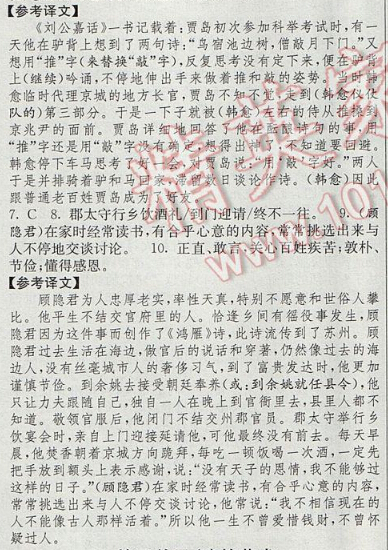 【参考译文】
《刘公嘉话》一书记载着:贾岛初次参加科举考试时,有一
天他在驴背上想到了两句诗:“鸟宿池边树,僧敲月下门。”又
想用“推”字(来替换“敲”字),反复思考没有定下来,便在驴背
上(继续)吟诵,不停地伸出手来做着推和敲的姿势。当时韩
愈临时代理京城的地方长官,贾岛不知不觉走到(韩愈仪仗
队的)第三部分。于是一下子就被(韩愈)左右的侍从推搡到
京兆尹的面前。贾岛详细地回答了他在酝酿诗句的事,用
“推”字还是用“敲”字没有确定,
愈停下车马思考了好一会,对贾岛说:“用‘敲’字好。”两人
于是并排骑着驴和马回家,
跟普通老百姓贾岛成为了好友。
7. C 8. 郡太守行乡饮酒礼/到门迎请/终不一往。 9. (顾
隐君)在家时经常读书,有合乎心意的内容,常常挑选出来与
人不停地交谈讨论。 10. 正直、敢言;关心百姓疾苦;敦朴、
节俭;懂得感恩。
【参考译文】
顾隐君为人忠厚老实,率性天真,特别不愿意和世俗人攀
比。他平生不结交官府里的人。恰逢乡间有徭役事发生,顾
隐君因为这件事而创作了《鸿雁》诗,此诗流传到了苏州。顾
隐君过去生活在海边,做官后的说话和穿著,仍然像过去的海
边人,没有丝毫城市人的奢侈习气,到了富贵发达时,他更加
谨慎节俭。到余姚去接受朝廷奉养(或:到余姚就任县令),他
只让力夫跟随自己,独自一人在晚上回官衙里去,县里人都不
知道。敬领官服后,他闭门不结交州郡官员。郡太守举行乡
饮宴会时,亲自上门迎接延请他,可他最终没有前去。每天早
晨,他焚香朝着京城方向跪拜,每吃一顿饭喝一次酒,一定先
把手放到额头上表示感谢,说:“没有天子的恩情,我不能够过
这样的日子。”(顾隐君)在家时经常读书,有合乎心意的内容,
常常挑选出来与人不停交谈讨论,他常说:“我不相信现在的
人不能像古人那样活着。”所以他一生不曾爱惜钱财,不曾怀
疑过人。